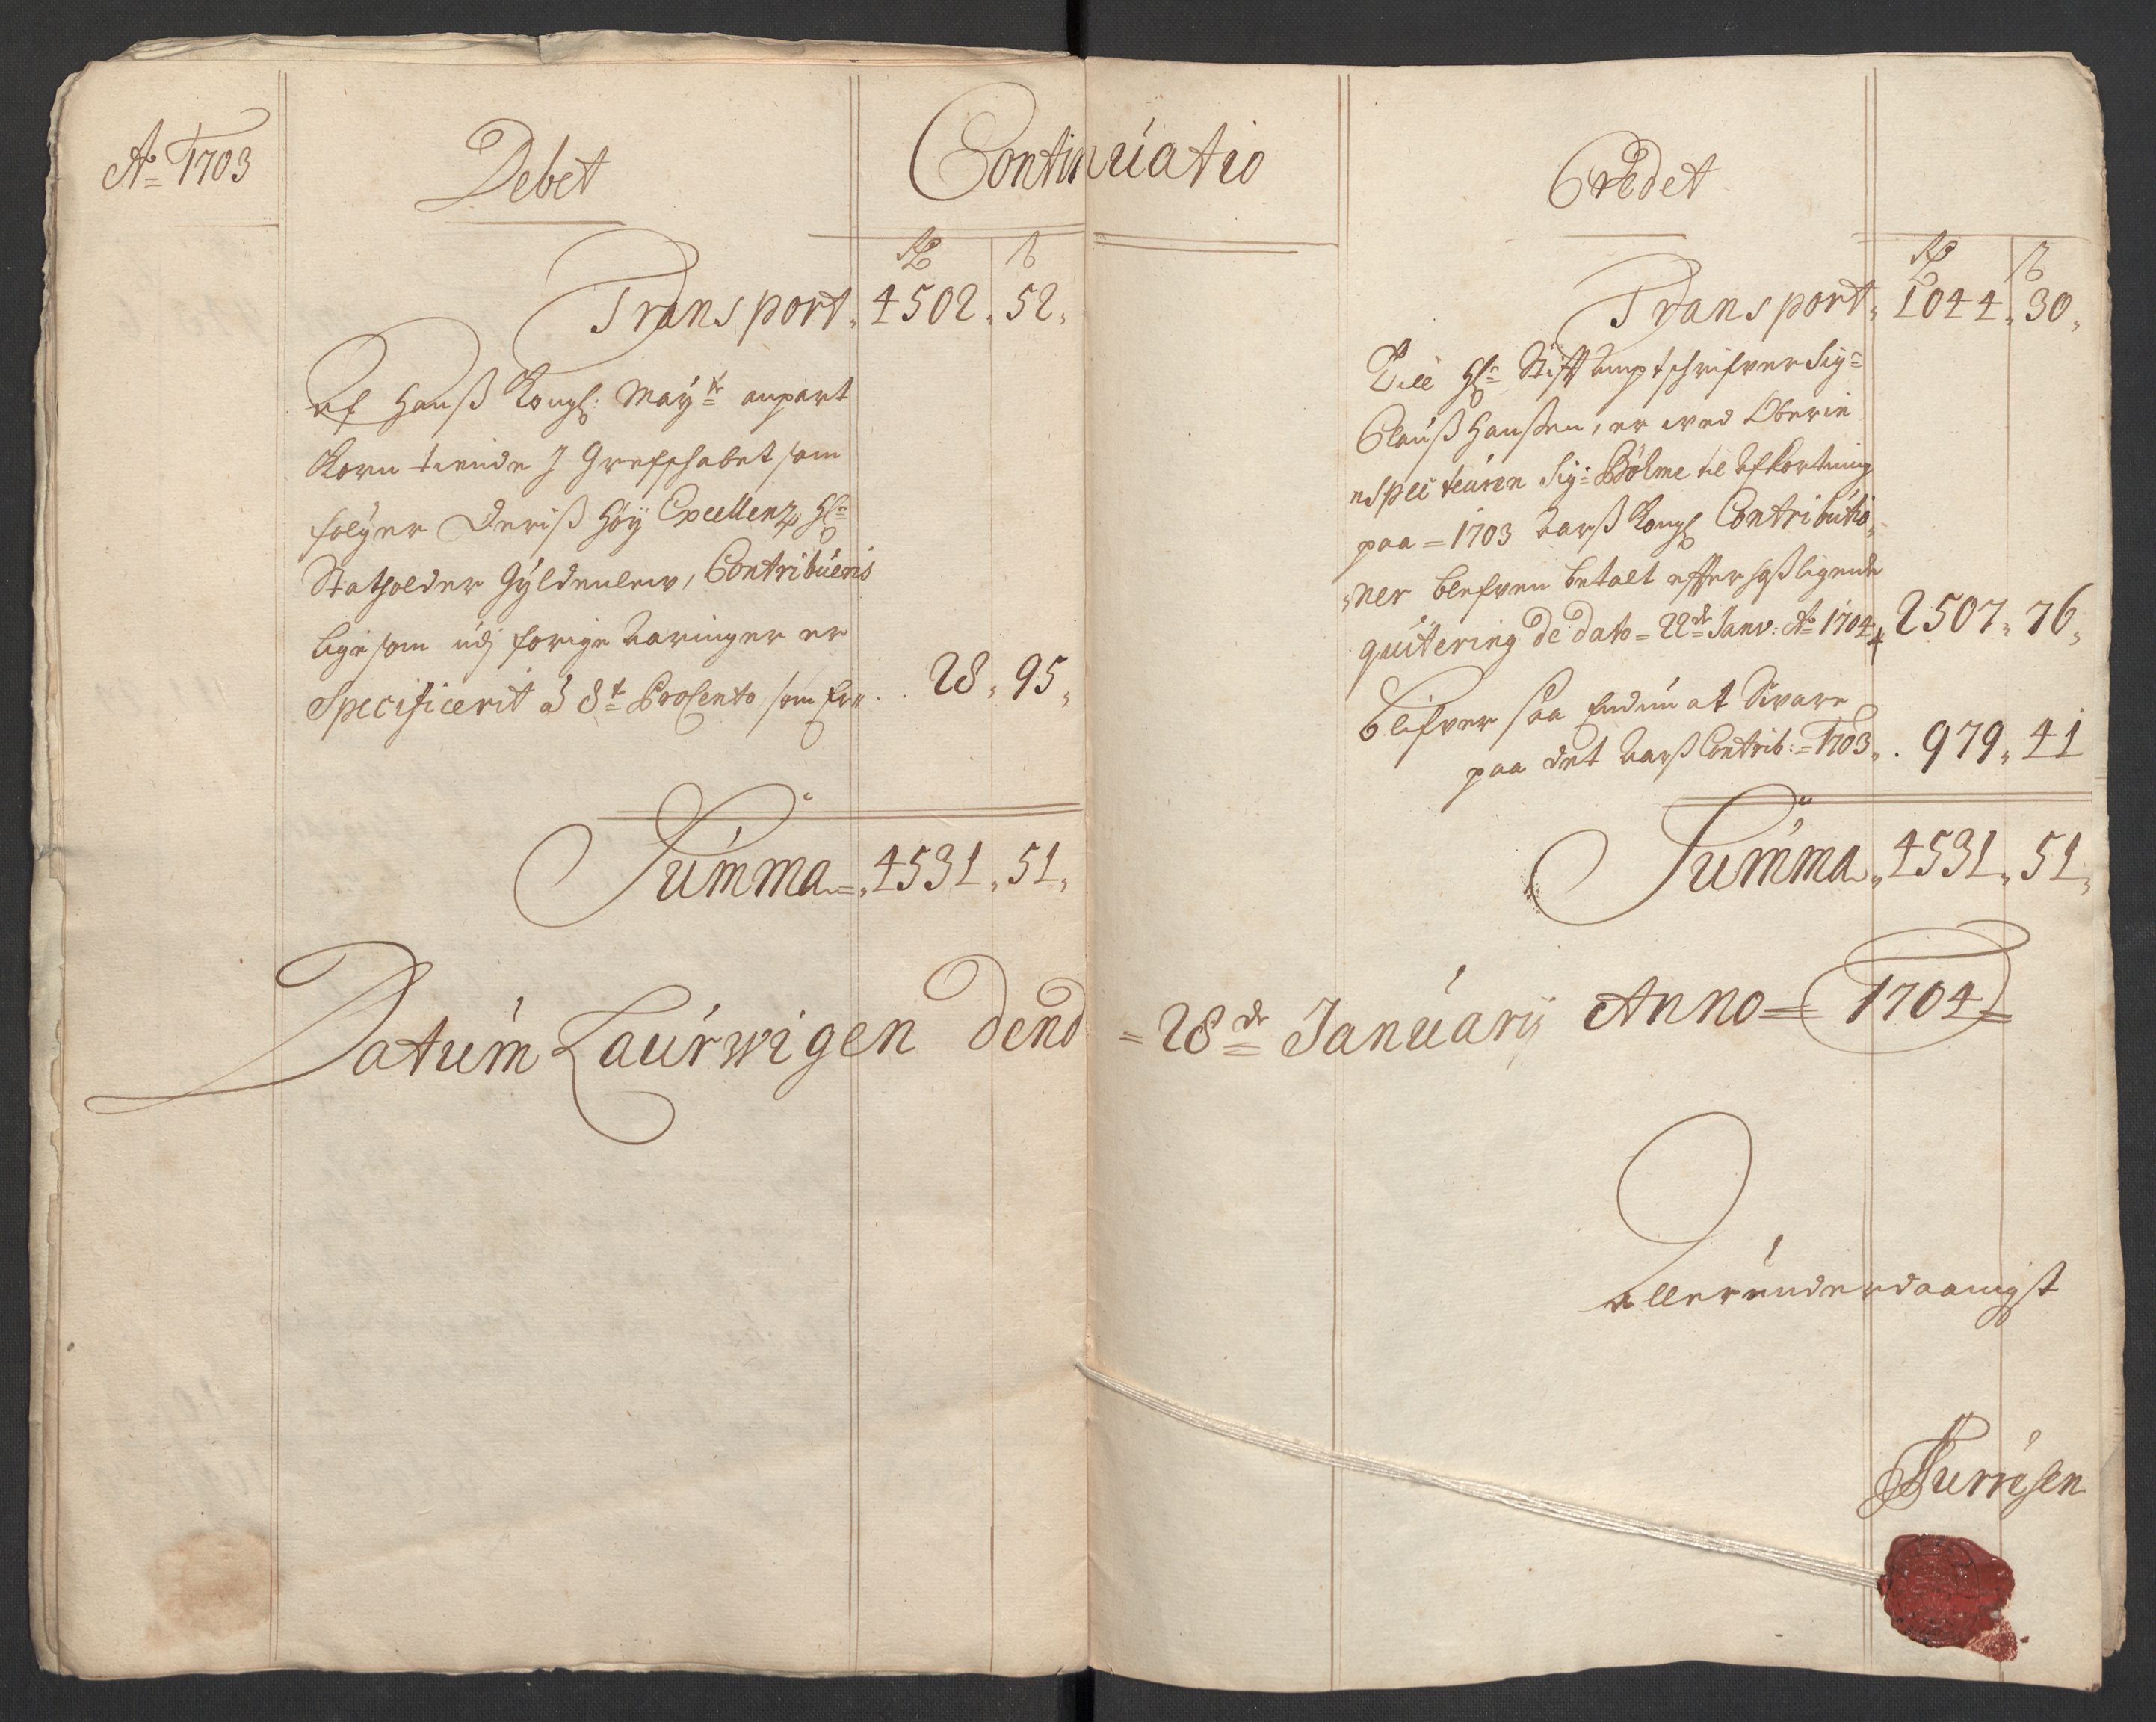 Ao 1703
Debet
Continuatio
Credet
Rd ß
Transport 4502 52
Af Hanß Kongl: Maytz anpart
Korn tiende J Grefschabet som
følger Deriß Høy Excellentz Hr
Statholder Gyldenlew, Contribueris
lige som udj forige Aaringer er
Specificerit á 8t Prosento som Er 28 95
Summa 4531 51
Rd ß
Transport 1044 30
Till Hr Stifft amptschrifver Sig=
Clauß Hanßen, er wed Oberin
nspecteuren Sig= Bøhme til Afkortning
paa =1703 Aarß Kongl Contributio
ner blefven betalt effter hoßligende
quitering De dato = 22de Janv: Ao 1704 2507 76
Blifver saa Endnu at Svare
paa det Aarß Contrib: =1703 979 41
Summa 4531 51
Datum Laurwigen Dend =28de Januarij Anno =1704=
Allerunderdaanigst